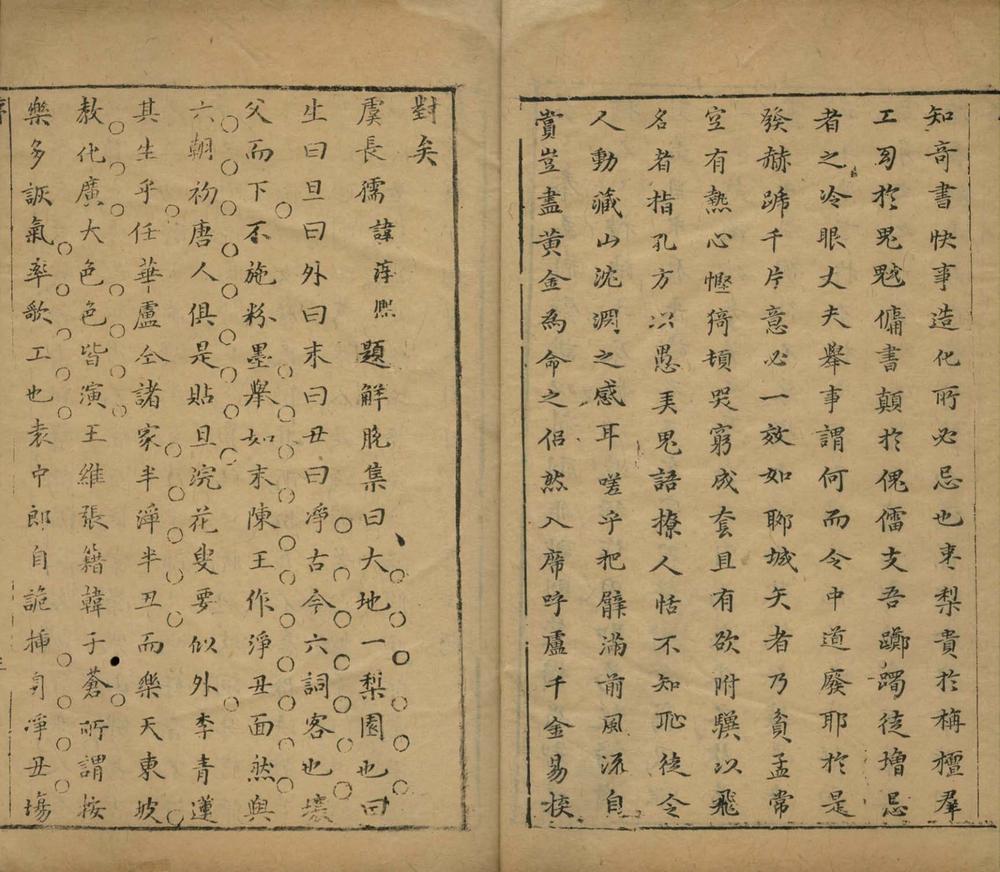 知奇書快事造化所必忌也枣梨貴於稱檀羣
工司於鬼魆傭書顛於傀儡支吾躑躅徒增忌
者之冷眼丈夫舉事謂何而令中道廢耶於是
發赫蹏千片意必一效如聊城矢者乃貧孟嘗
空有熱心慳猗頓哭窮成套且有欲附驥以飛
名者指孔方以愚美鬼語撩人恬不知恥徒令
人動藏山沈淵之感耳嗟乎把臂滿前風流自
賞豈盡黃金為命之侣然入席呼盧千金易掞
對矣
虞長孺諱淳熙題解脫集曰大地一梨園也曰
生曰旦曰外曰末曰丑曰淨古今六詞客也壤
父而下不施粉墨舉如末陳王作淨丑面然與
六朝初唐人俱是貼旦浣花叟要似外李青蓮
其生乎任華盧仝諸家半淨半丑而樂天東坡
教化廣大色色皆演王維張籍韓子蒼所謂按
樂多詼氣率歌工也袁中郎自詭插身淨丑場